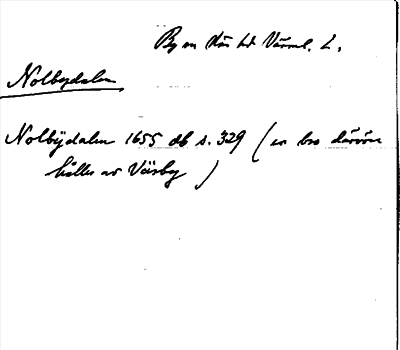 By en Näs hd Värml. L.
Nolbydalen
Nolbÿdalen 1655 db s. 329 (en bro däröver
hålles av Väsby)